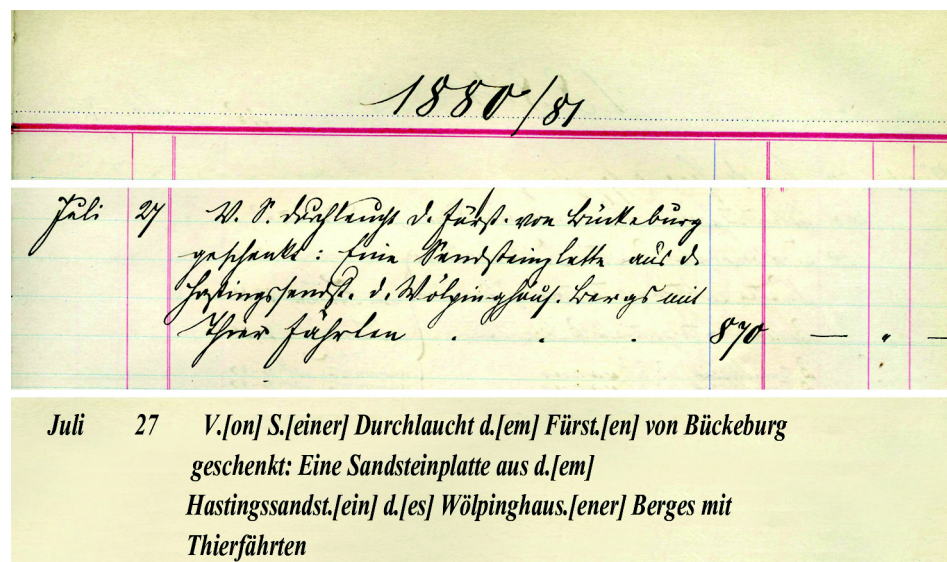 1880/81
Juli 27 V. S. Durchlaucht d. Fürst. von Bückeburg
geschenkt: Eine Sandsteinplatte aus d.
Hastingssandst. d. Wölpinghaus. Bergs mit
Thier Fährten . . . 870 — " —
Juli 27 V.[on] S.[einer] Durchlaucht d.[em] Fürst.[en] von Bückeburg
geschenkt: Eine Sandsteinplatte aus d.[em]
Hastingssandst.[ein] d.[es] Wölpinghaus.[ener] Berges mit
Thierfährten